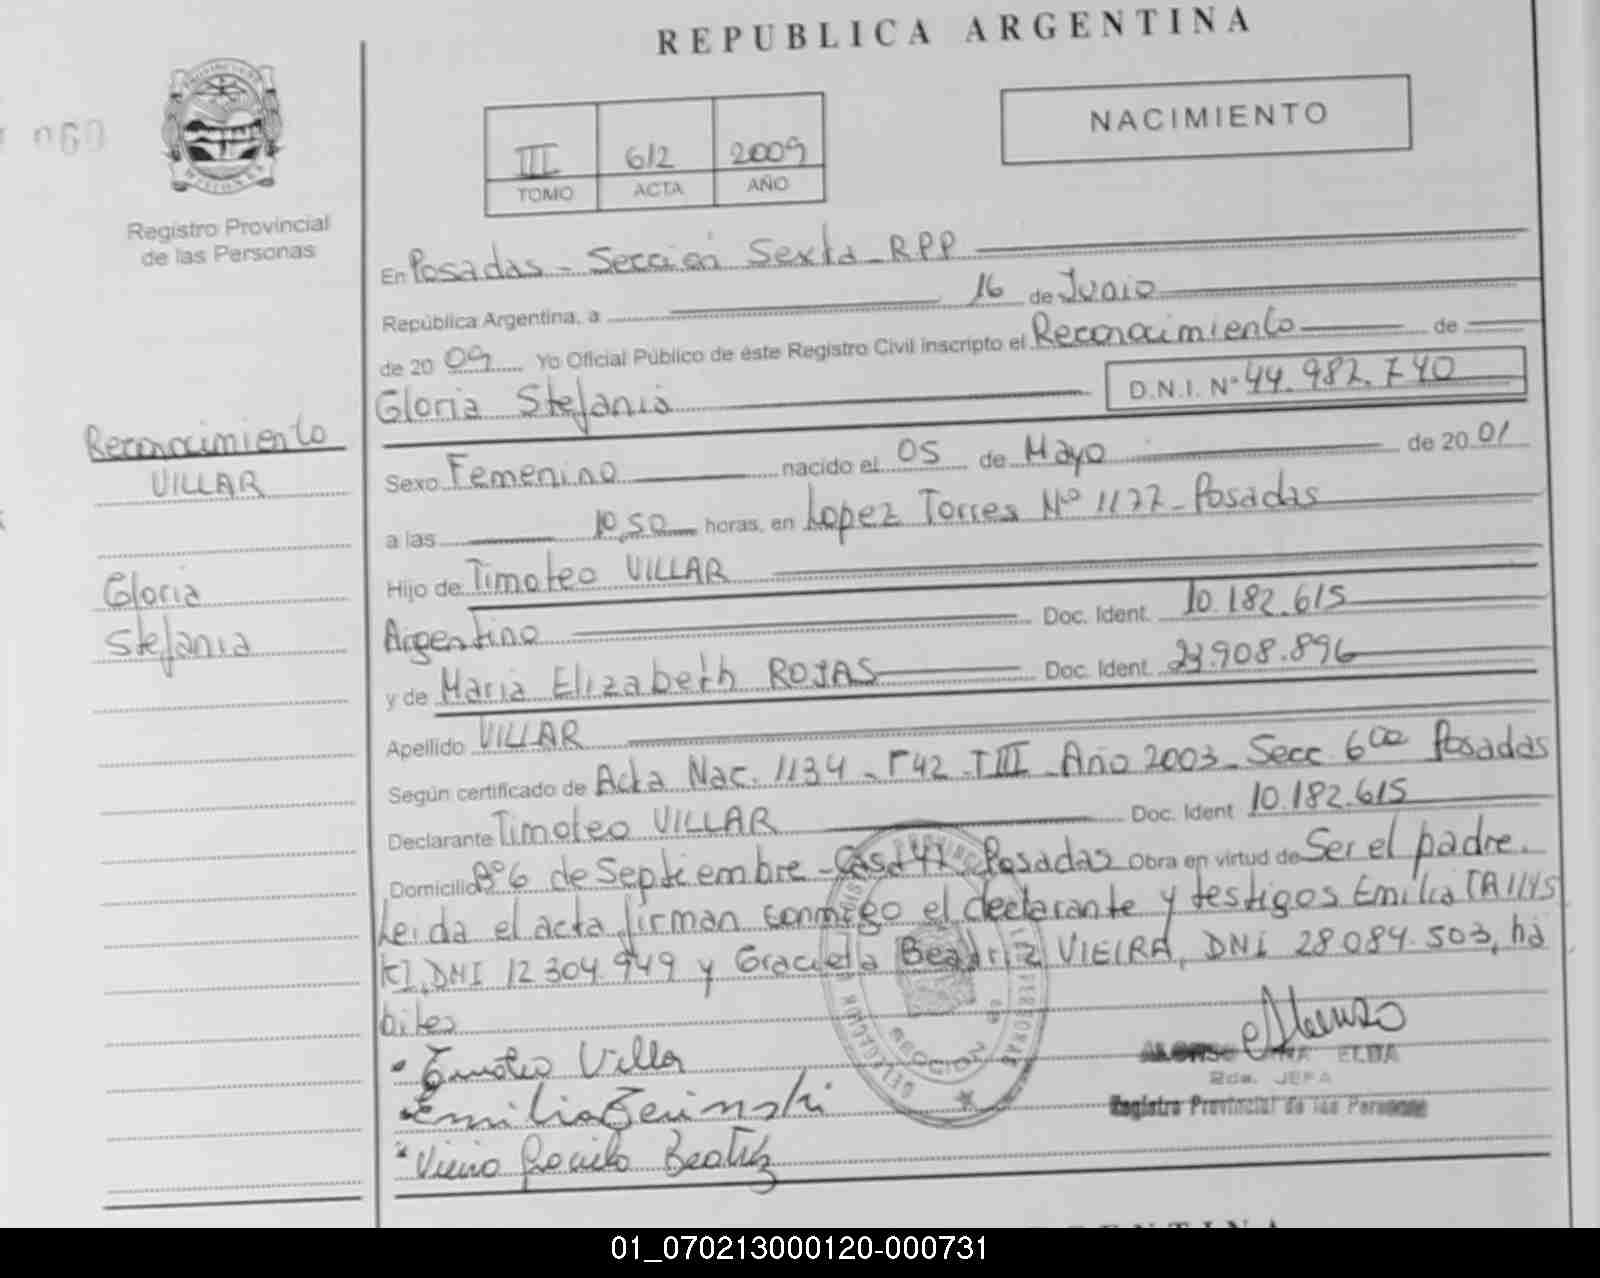 REPUBLICA ARGENTINA
NACIMIENTO
III 612 2009
TOMO ACTA AÑO
060
Registro Provincial
de las Personas
En Posadas - Sección Sexta - RPP
República Argentina, a 16 de Junio
de 20 09 Yo Oficial Público de éste Registro Civil inscripto el Reconocimiento de
Gloria Stefania D.N.I. Nº 44.982.740
Reconocimiento
VILLAR
Gloria
Stefania
Sexo Femenino nacido el 05 de Mayo de 20 01
a las 10,50 horas, en Lopez Torres Nº 1177 - Posadas
Hijo de Timoteo VILLAR
Argentino Doc. Ident. 10.182.615
y de Maria Elizabeth ROJAS Doc. Ident. 23.908.896
Apellido VILLAR
Según certificado de Acta Nac. 1134 - F 42 - T III - Año 2003 - Secc. 6ta Posadas
Declarante Timoteo VILLAR Doc. Ident 10.182.615
Domicilio Bº 6 de Septiembre - Casa 41 Posadas Obra en virtud de Ser el padre.
Leida el acta firman conmigo el declarante y testigos Emilia
DNI 12 304.949 y Graciela Beatriz VIEIRA, DNI 28.084.503, há
biles
Timoteo Villar
Emilia
Beatriz
ALONSO ELDA
2da. JEFA
Registro Provincial de las Personas
01_070213000120-000731